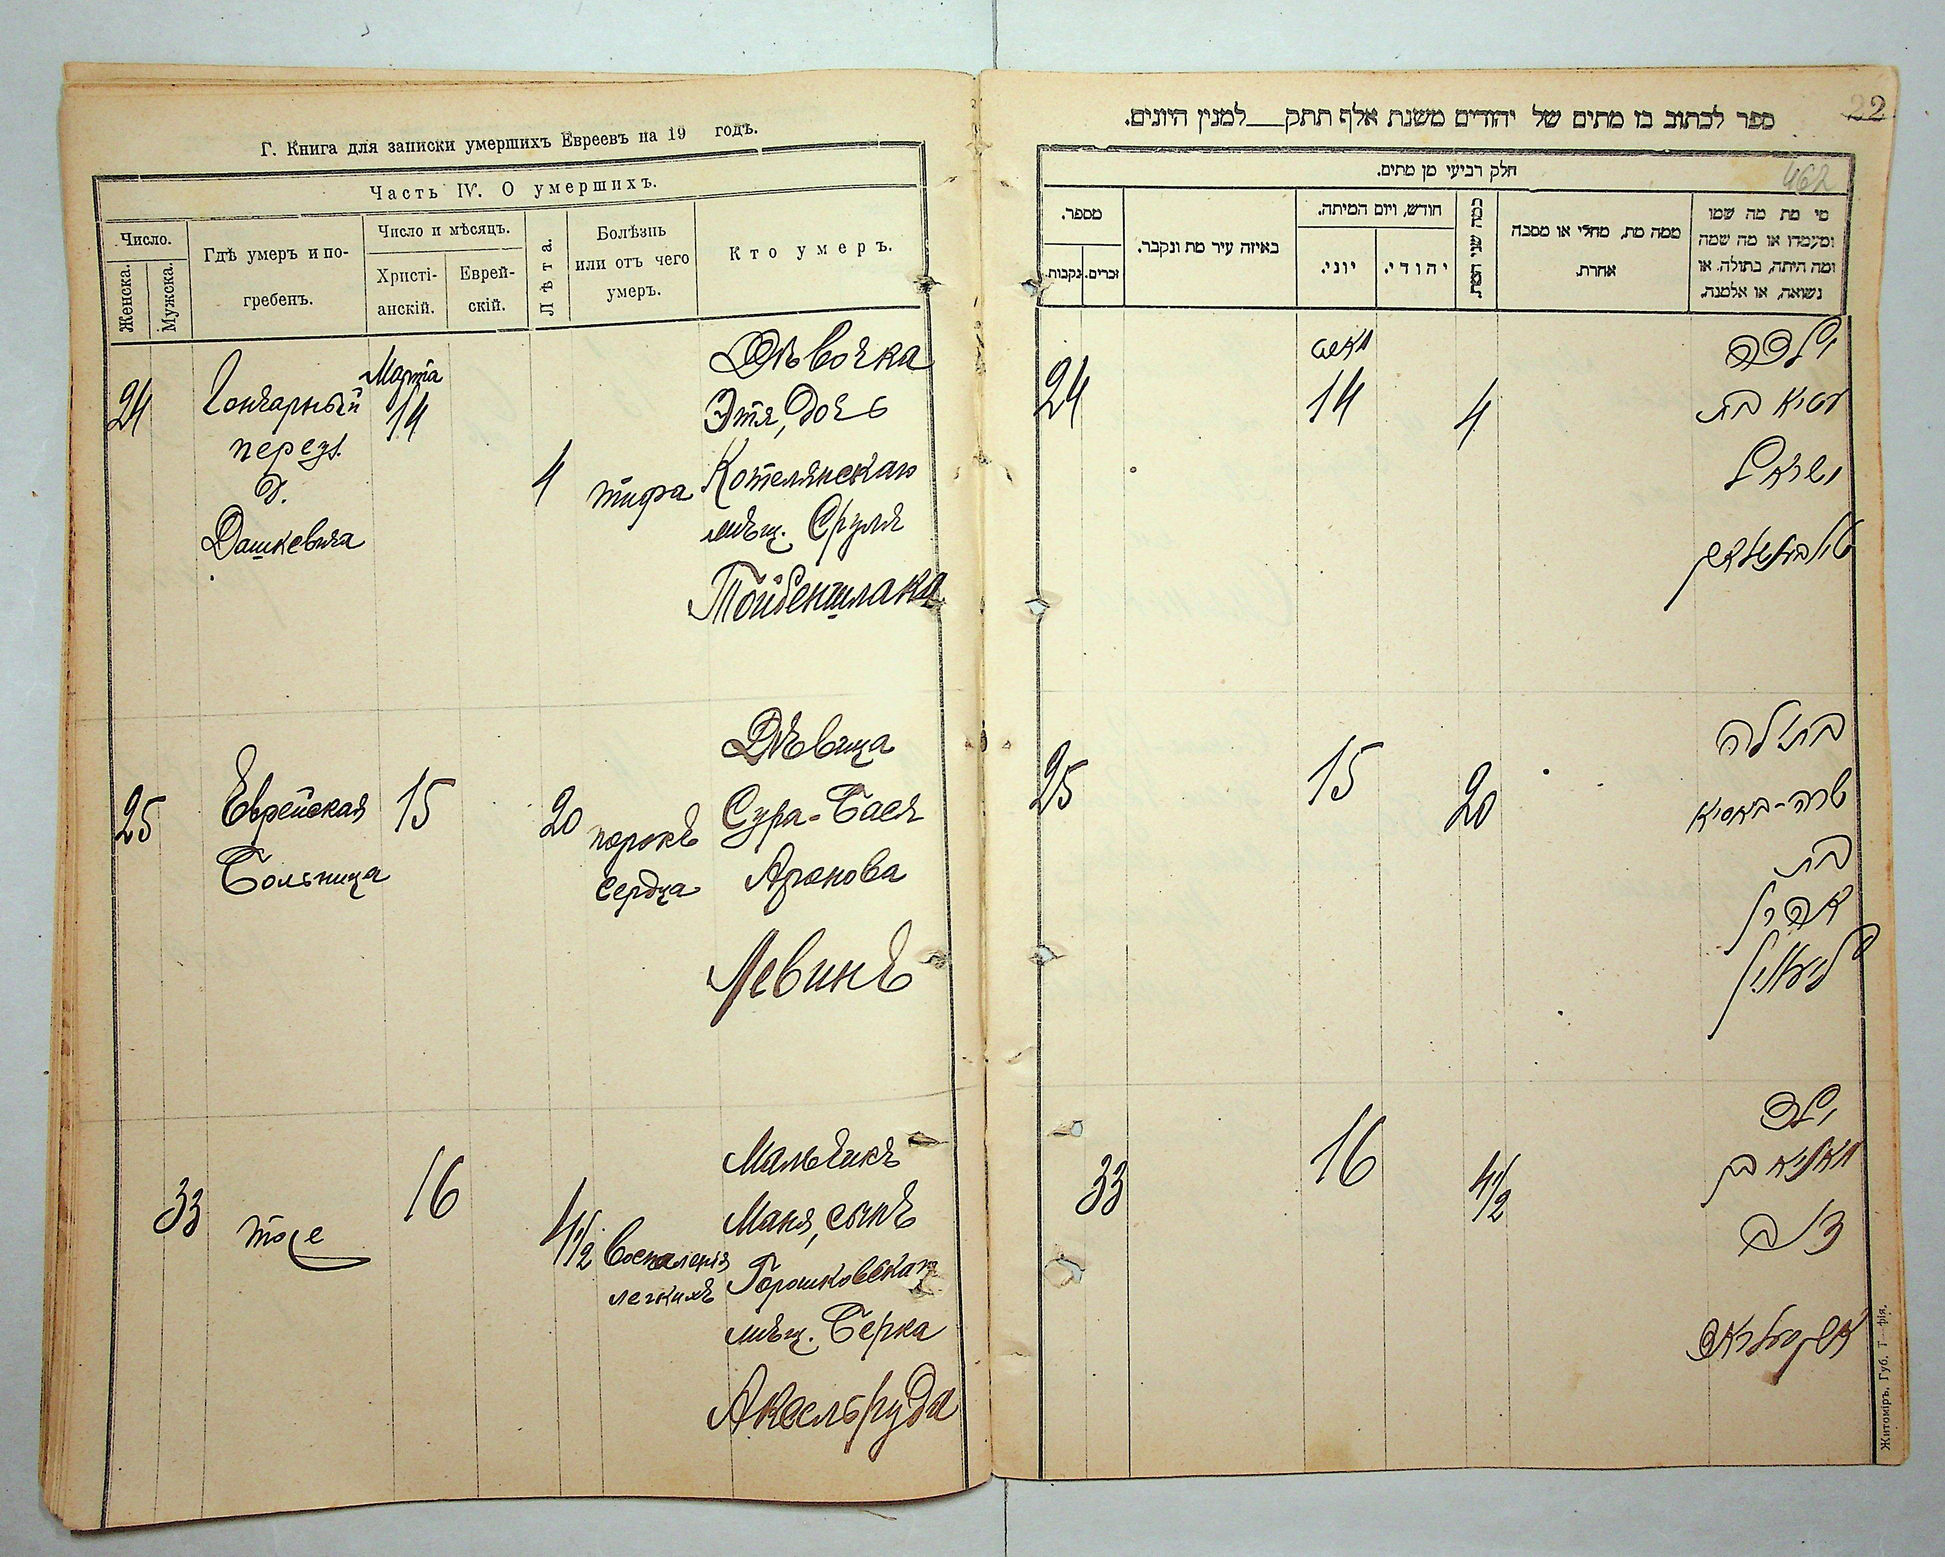 Г. Книга для записки умершихъ Евреевъ на 19 годъ.
Часть IV. О умершихъ.
Число.
Женска.
Мужска.
Гдѣ умеръ и по-
гребенъ.
Число и мѣсяцъ.
Христі-
анскій.
Еврей-
скій.
Лѣта.
Болѣзнь
или отъ чего
умеръ.
Кто умеръ.
24
Гончарный
переул.
д.
Дашкевича
Марта
14
4
тифа
Дѣвочка
Этя, дочь
Котелянскаго
мѣщ. Сруля
Тойбеншлака
25
Еврейская
Больница
15
20
порокъ
сердца
Дѣвица
Сура-Бася
Аронова
Левинъ
33
тоже
16
4 1/2
Воспаленія
легкихъ
Мальчикъ
Маня, сынъ
Горошковскаго
мѣщ. Берка
Аксельруда
22
ספר לכתוב בו מתים של יהודים משנת אלף תתק___למנין היונים.
462
חלק רביעי מן מתים.
מספר.
נקבות.
זכרים.
באיזה עיר מת ונקבר.
חודש, ויום המיתה.
יוני.
יהודי.
כמה שני המת
ממה מת, מחלי או מסבה
אחרת.
מי מת מה שמו
ומעמדו או מה שמה
ומה היתה, בתולה. או
נשואה, או אלמנה.
24
מארט
14
4
ילדה
עטיא בת
ישראל
טויבענשלאק
25
15
20
בתולה
שרה-באסיא
בת
אהרן
לעווין
33
16
4 1/2
ילד
מאניא בן
דוב
אקסעלראד
Житоміръ, Губ. Т—фія.